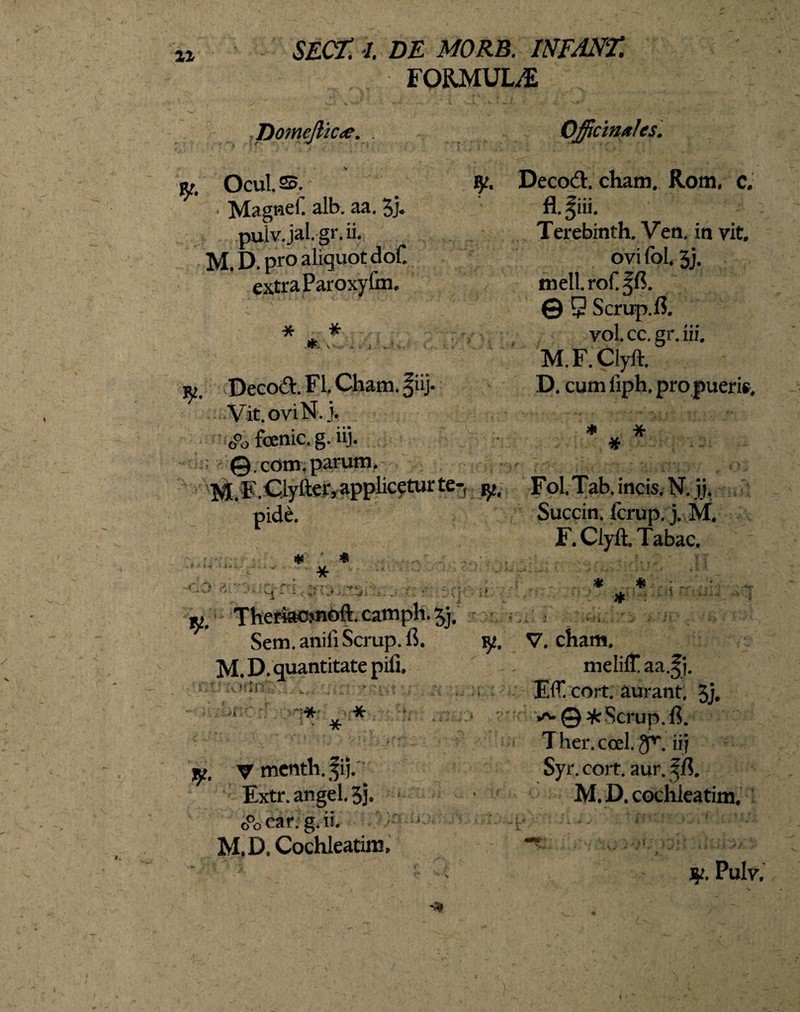 22 SECT. I. DE MORB. INFANT.
FORMULÆ
Domeſticæ.
℞. Ocul. ♋.
Magneſ. alb. aa. ʒj.
pulv. jal. gr. ii.
M. D. pro aliquot doſ.
extra Paroxyſm.
* * *
℞. Decoct. Fl. Cham. ℥iij.
Vit. ovi N. j.
fœnic. g. iij.
🜔. com. parum.
M. F. Clyſter, applicetur te-
pidè.
* * *
℞. Theriac. noſt. camph. ʒj.
Sem. aniſi Scrup. ß.
M. D. quantitate piſi.
* * *
℞. 🜄 menth. ℥ij.
Extr. angel. ʒj.
car. g. ii.
M. D. Cochleatim.
Officinales.
℞. Decoct. cham. Rom. c.
fl. ℥iii.
Terebinth. Ven. in vit.
ovi ſol. ʒj.
mell. roſ. ℥ß.
🜔 ♀ Scrup. ß.
vol. cc. gr. iii.
M. F. Clyſt.
D. cum ſiph. pro pueris.
* * *
℞. Fol. Tab. inciſ. N. jj.
Succin. ſcrup. j. M.
F. Clyſt. Tabac.
* * *
℞. 🜄. cham.
meliſſ. aa. ℥j.
Eſſ. cort. aurant. ʒj.
🜔 🞶 Scrup. ß.
Ther. cœl. gr. iij
Syr. cort. aur. ℥ß.
M. D. cochleatim.
℞. Pulv.